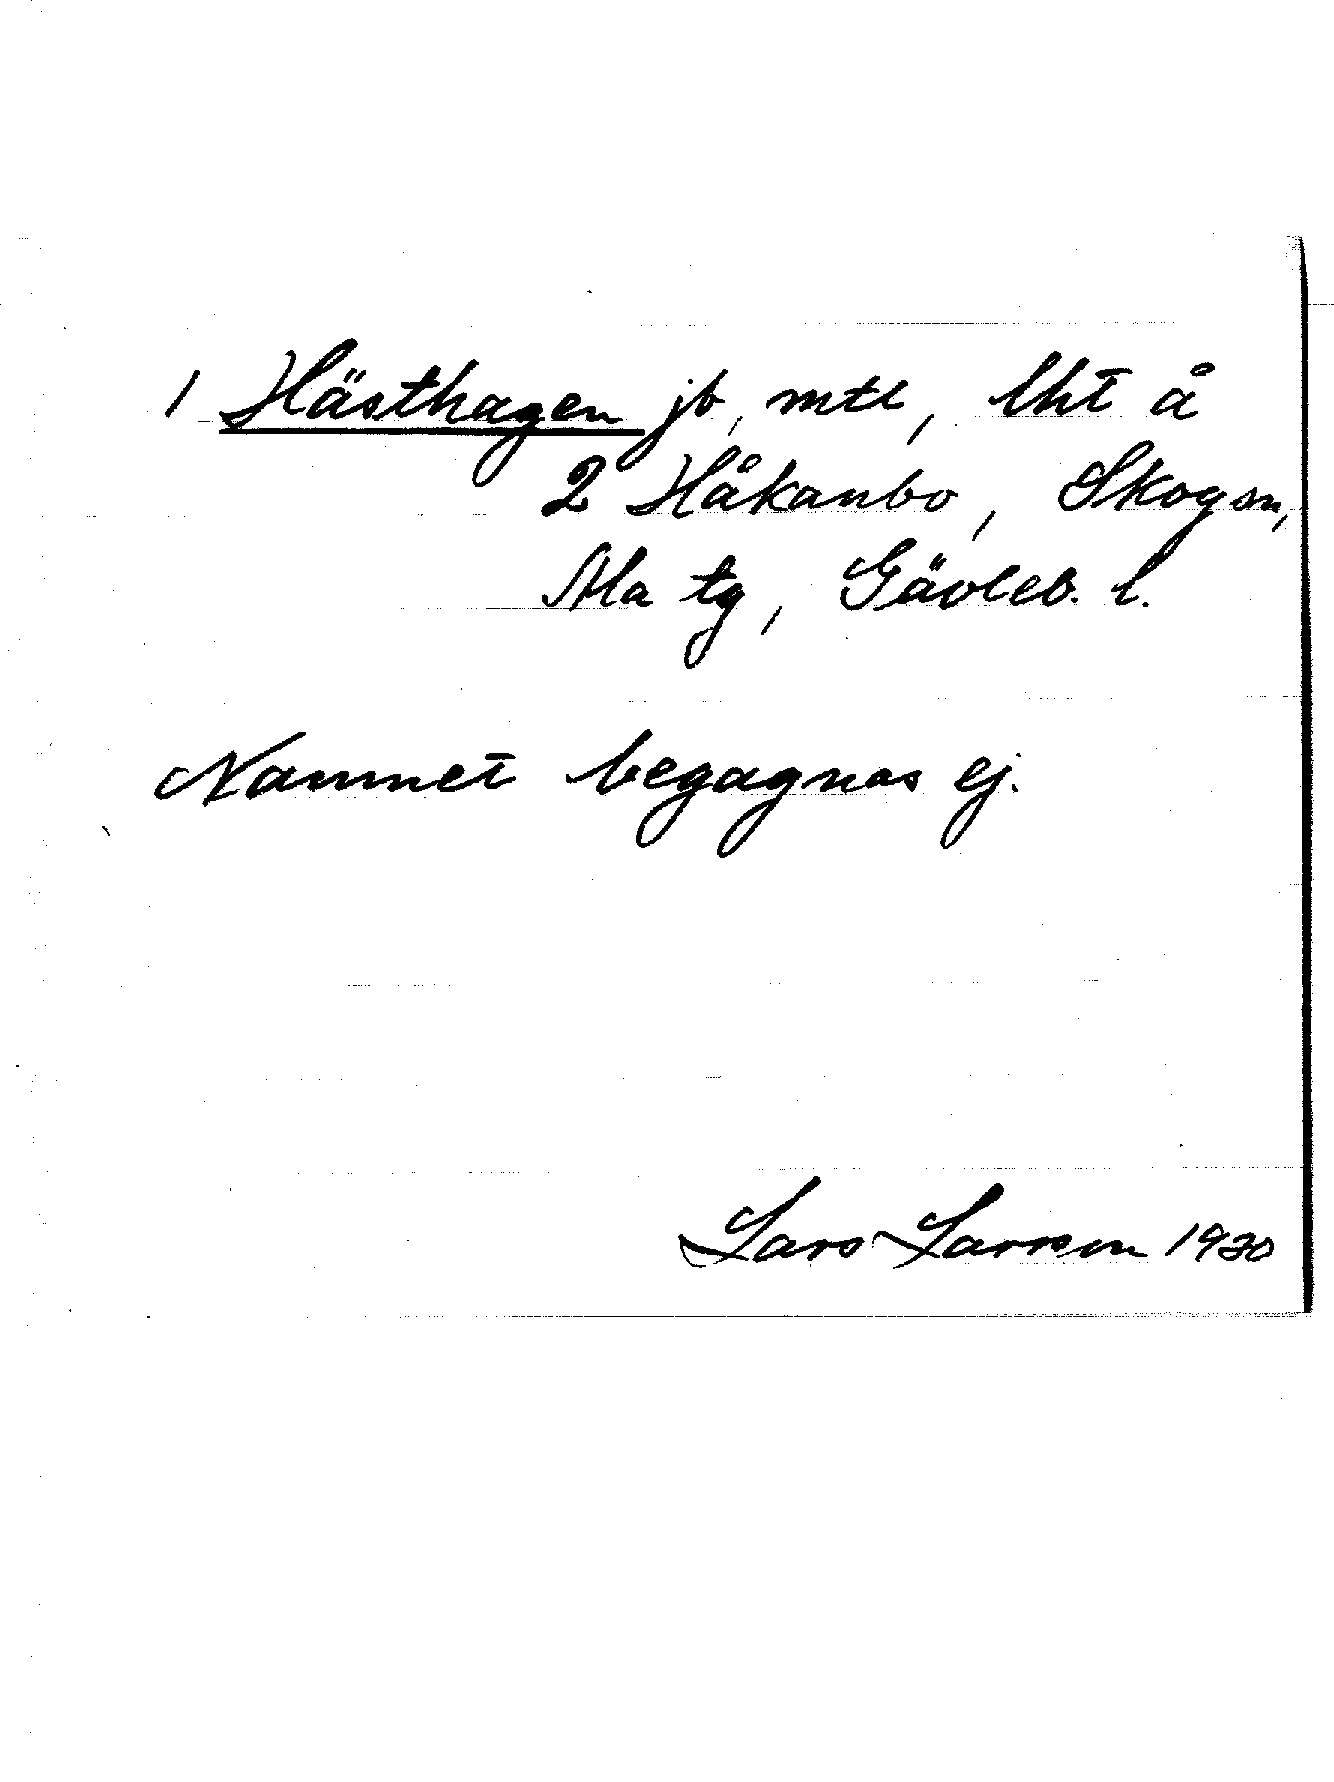 1 Hästhagen jb, mtl, lht å
2 Håkanbo, Skog sn,
Ala tg, Gävleb. l.
Namnet begagnas ej.
Lars Larsson 1930